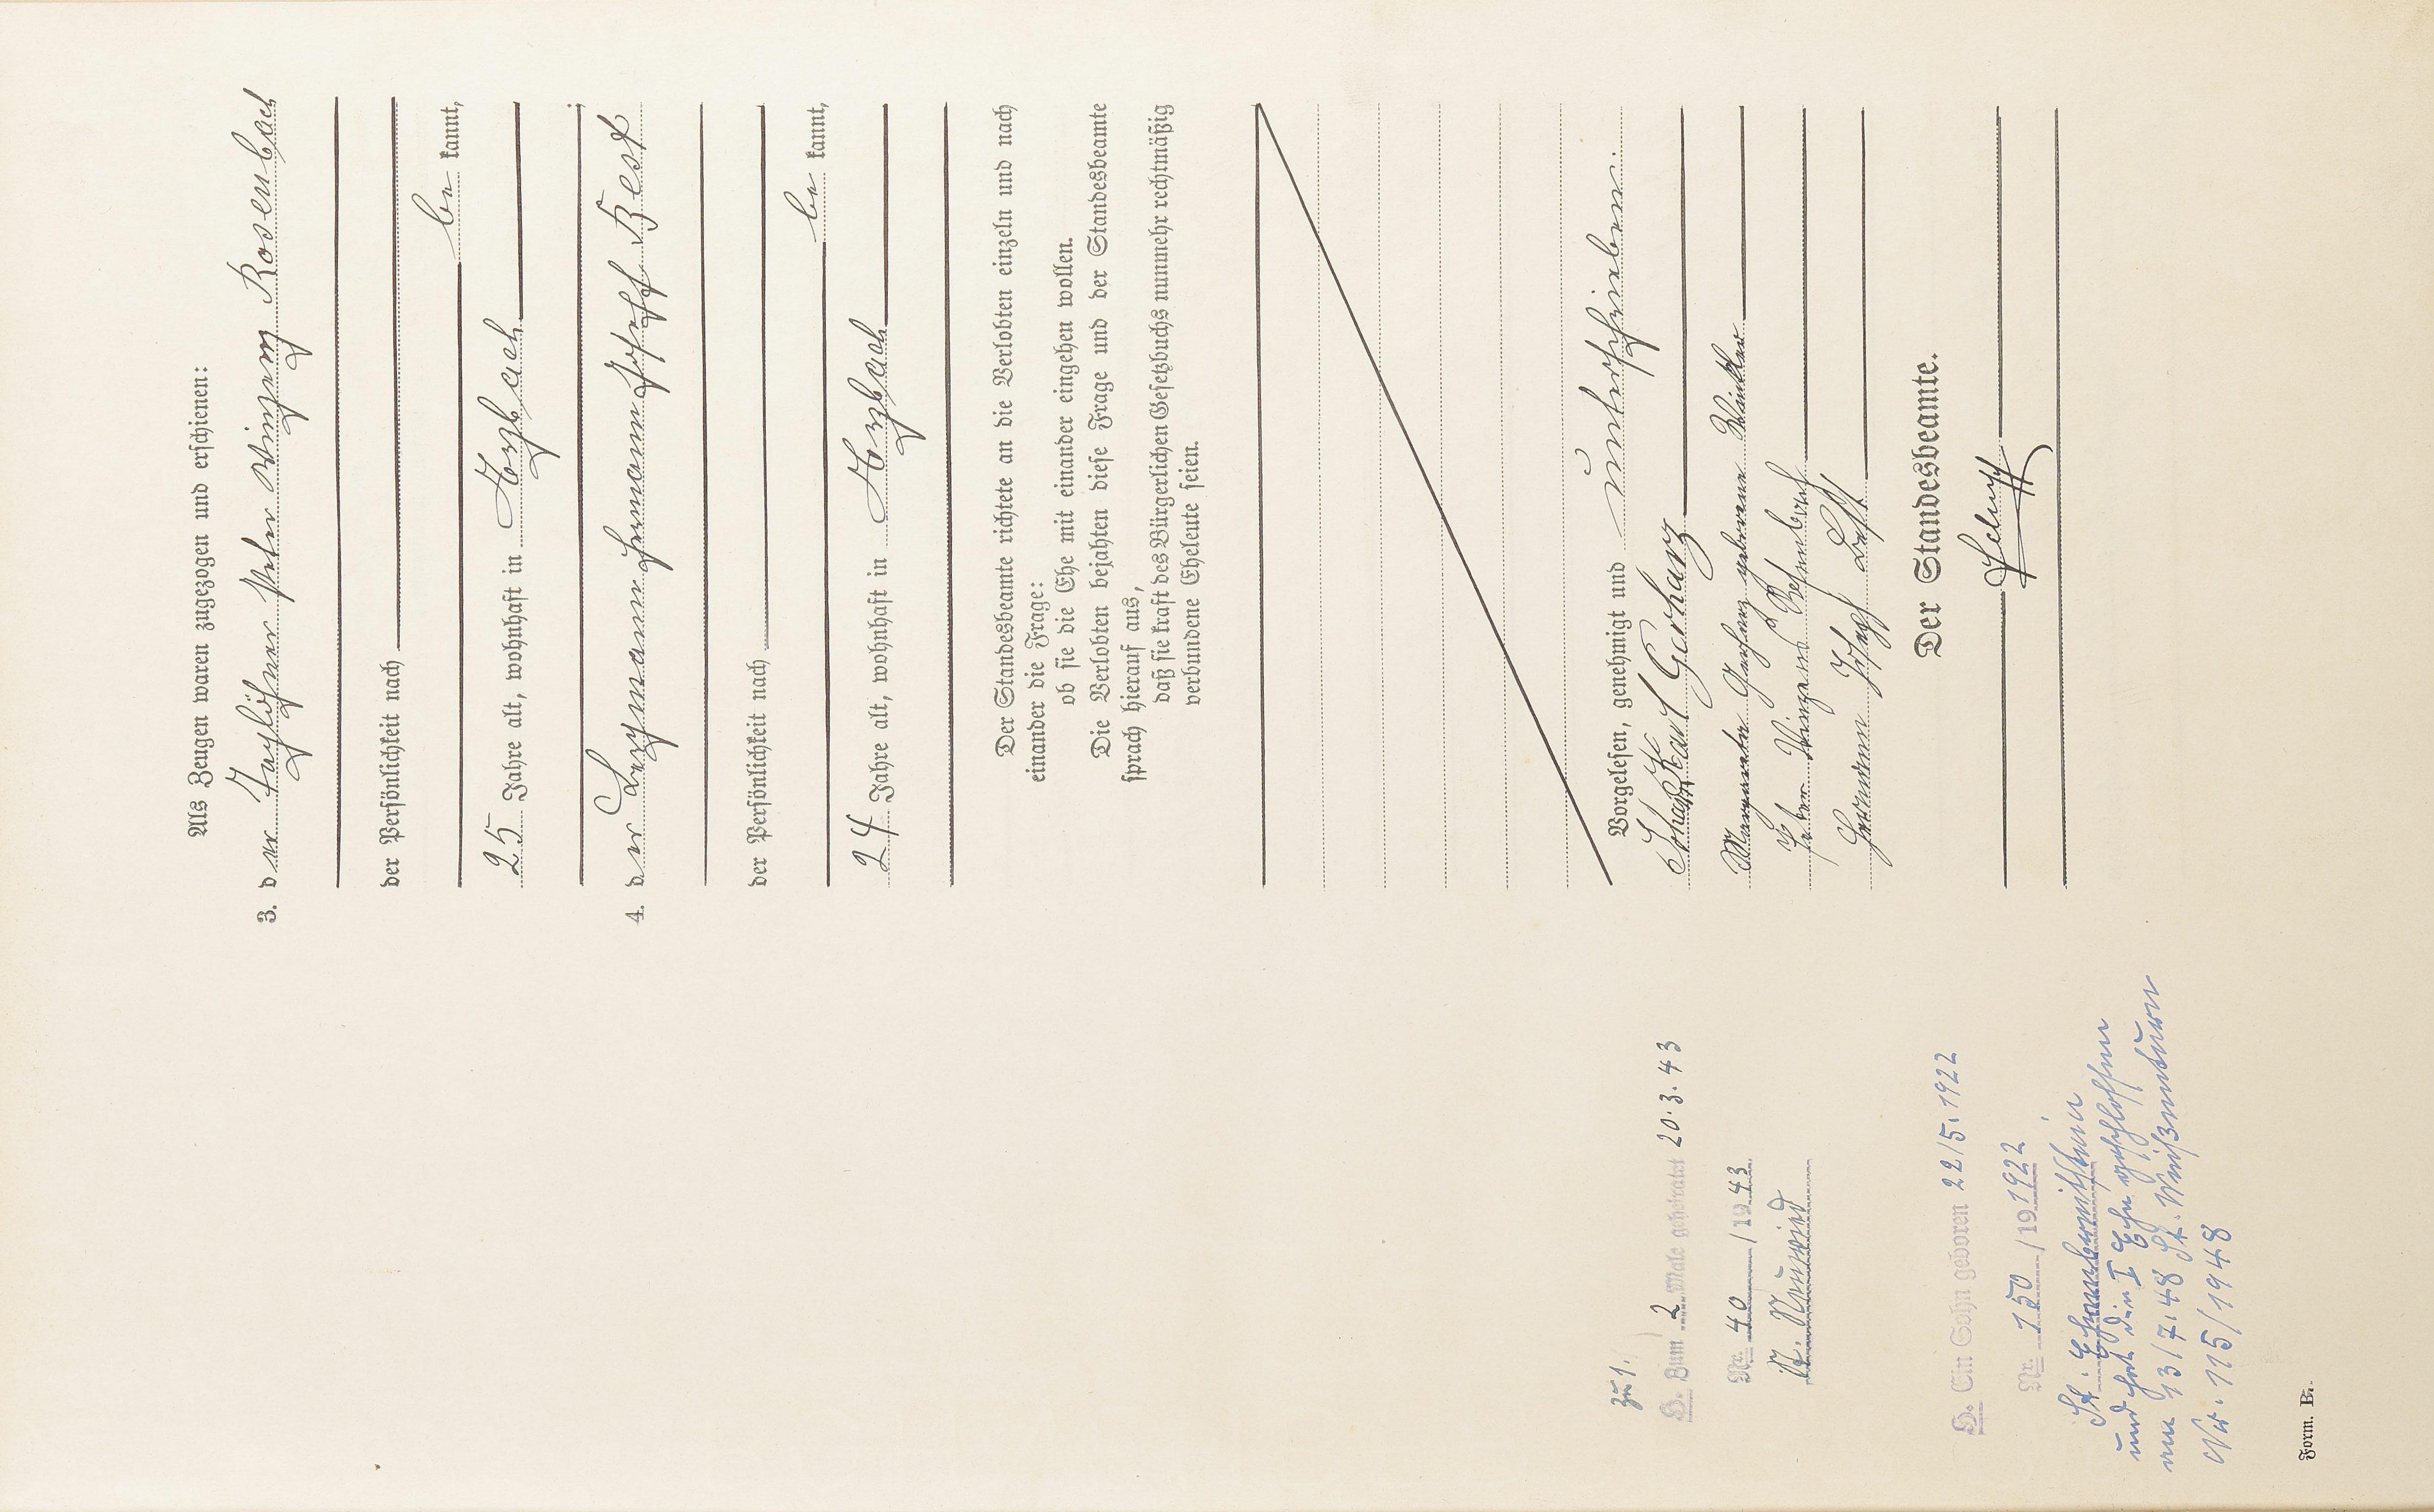 Als Zeugen waren zugezogen und erschienen:
3. der Taglöhner Peter Winzenz Rosenbach
der Persönlichkeit nach
be kannt,
25 Jahre alt, wohnhaft in Horbach
4. der Bergmann Hermann Josef Best
der Persönlichkeit nach
be kannt,
24 Jahre alt, wohnhaft in Horbach
Der Standesbeamte richtete an die Verlobten einzeln und nach
einander die Frage:
ob sie die Ehe mit einander eingehen wollen.
Die Verlobten bejahten diese Frage und der Standesbeamte
sprach hierauf aus,
daß sie kraft des Bürgerlichen Gesetzbuchs nunmehr rechtmäßig
verbundene Eheleute seien.
Vorgelesen, genehmigt und unterschrieben.
Karl Gerharz
Margareta Gerharz geborene
Peter Vinzens Rosenbach
Hermann Josef Best
Der Standesbeamte.
zu 1.
H. Zum 2 Male geheiratet 20.3.43
Nr. 40/1943
St. Neuwied
H. Ein Sohn geboren 22/5.1922
Nr. 150/191922
St. Ehrenbreitstein
und hat die I Ehe geschlossen
am 13/7.48 St. Weißenturm
Nr. 115/1948
Form. B.